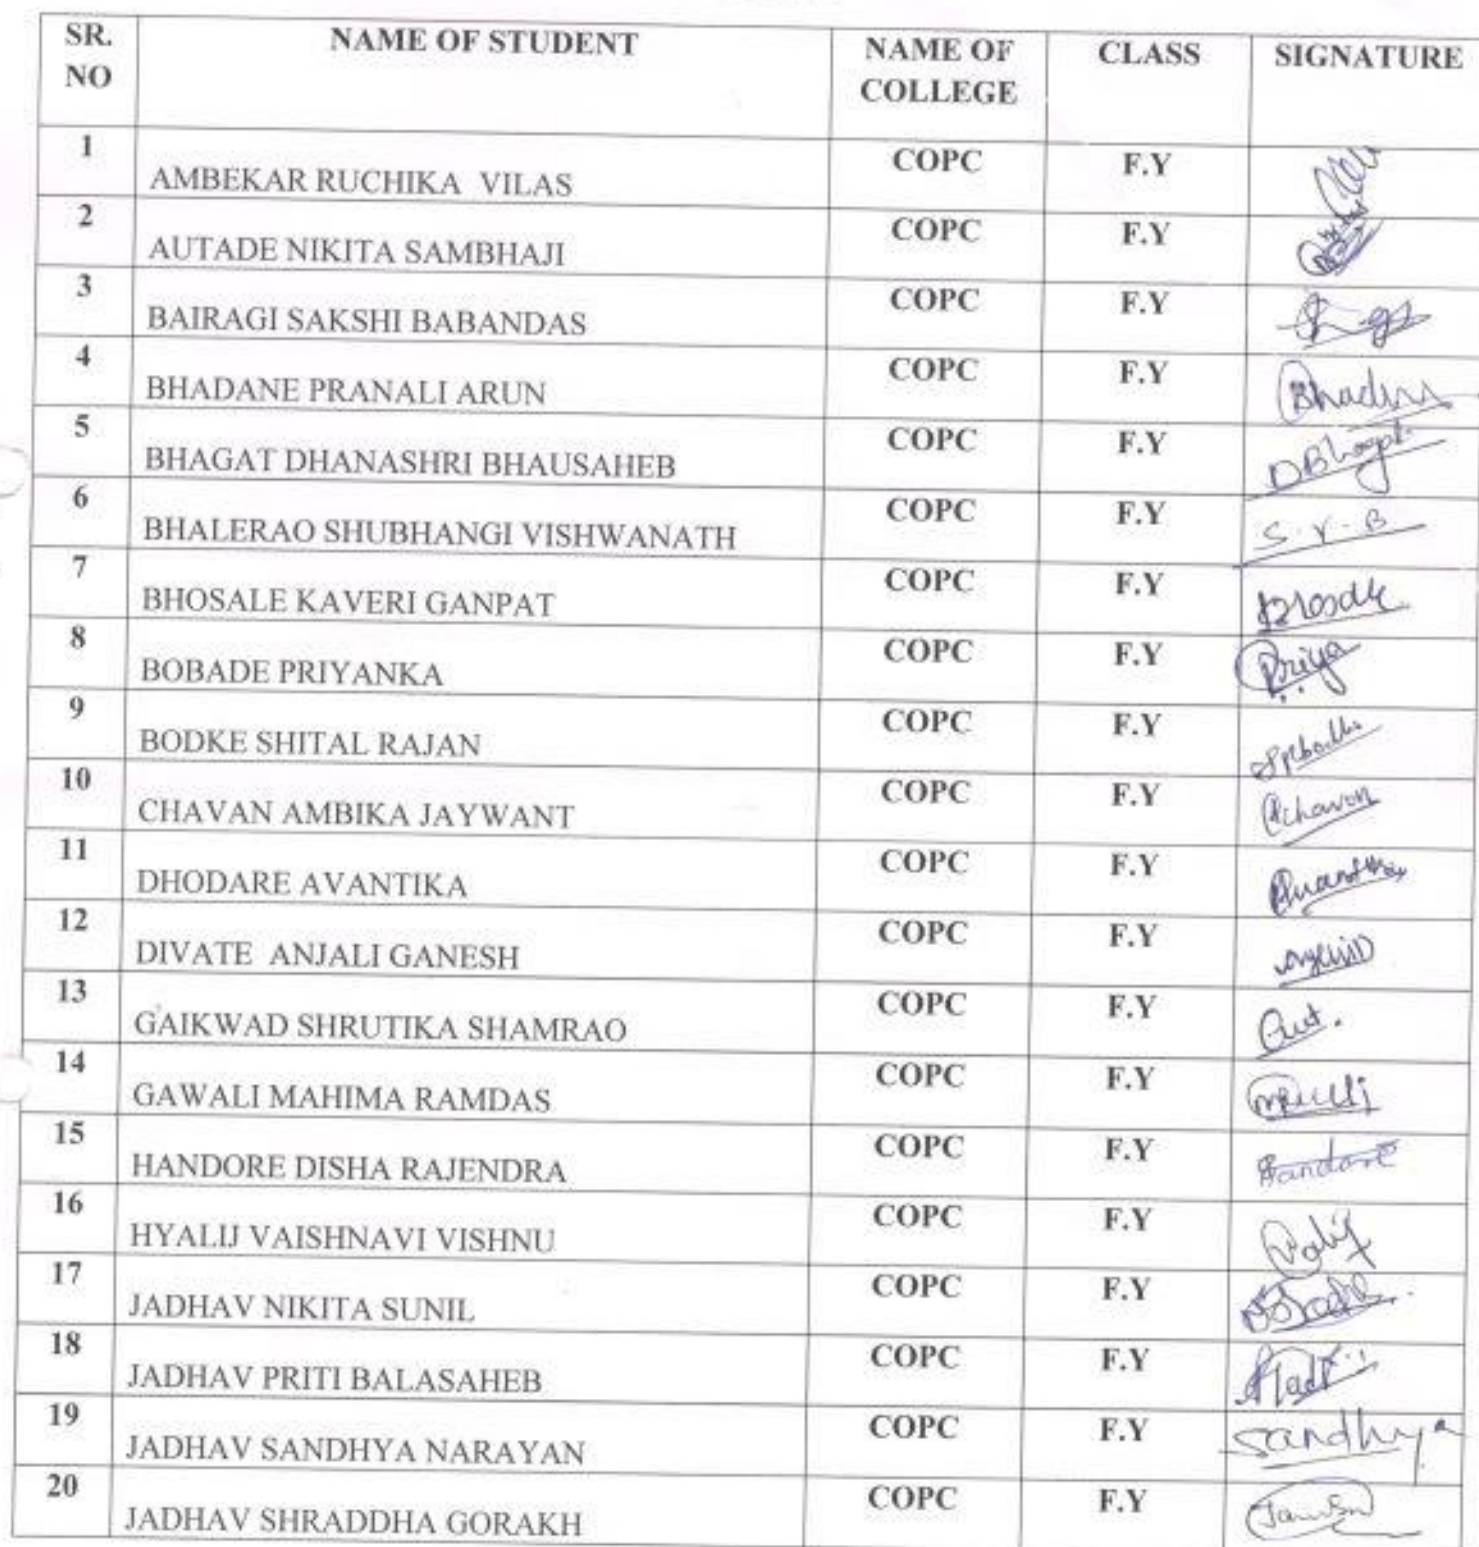 SR. NO NAME OF STUDENT NAME OF COLLEGE CLASS SIGNATURE
1 AMBEKAR RUCHIKA VILAS COPC F.Y
2 AUTADE NIKITA SAMBHAJI COPC F.Y
3 BAIRAGI SAKSHI BABANDAS COPC F.Y
4 BHADANE PRANALI ARUN COPC F.Y
5 BHAGAT DHANASHRI BHAUSAHEB COPC F.Y
6 BHALERAO SHUBHANGI VISHWANATH COPC F.Y S.V.B
7 BHOSALE KAVERI GANPAT COPC F.Y
8 BOBADE PRIYANKA COPC F.Y Priya
9 BODKE SHITAL RAJAN COPC F.Y
10 CHAVAN AMBIKA JAYWANT COPC F.Y
11 DHODARE AVANTIKA COPC F.Y
12 DIVATE ANJALI GANESH COPC F.Y
13 GAIKWAD SHRUTIKA SHAMRAO COPC F.Y
14 GAWALI MAHIMA RAMDAS COPC F.Y
15 HANDORE DISHA RAJENDRA COPC F.Y
16 HYALIJ VAISHNAVI VISHNU COPC F.Y
17 JADHAV NIKITA SUNIL COPC F.Y
18 JADHAV PRITI BALASAHEB COPC F.Y
19 JADHAV SANDHYA NARAYAN COPC F.Y Sandhya
20 JADHAV SHRADDHA GORAKH COPC F.Y